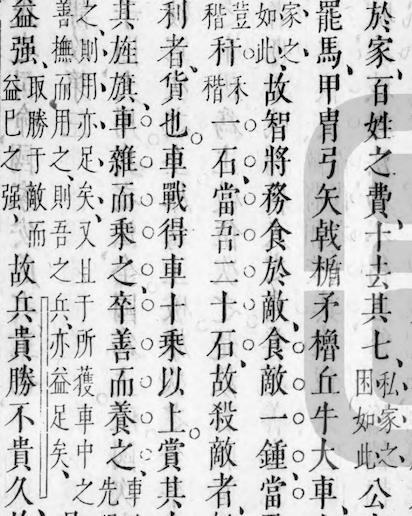 於家、百姓之費、十去其七、私家之困如此公
罷馬、甲冑弓矢戟楯矛櫓丘牛大車、
家之如此、故智將務食於敵、食敵一鍾、當
荳稭秆禾稭一石、當吾二十石、故殺敵者、
利者、貨也。車戰得車十乘以上、賞其
其旌旗、車雜而乘之、卒善而養之、車先
之、則用亦足矣、又且于所獲車中之
善撫而用之、則吾之兵、亦益足矣、
益强、取勝于敵而益已之强、故兵貴勝不貴久